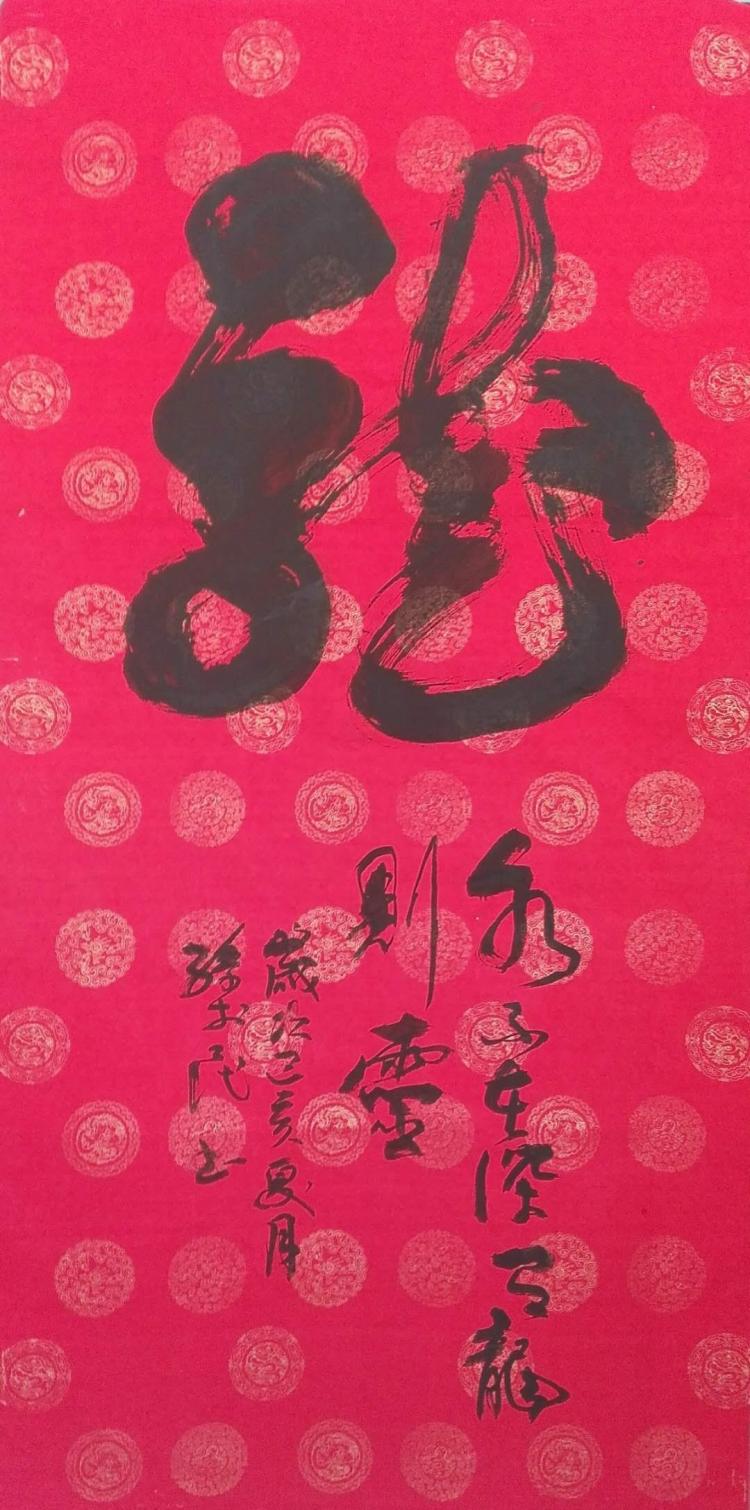 龍
水不在深有龍
則靈
歲次己亥夏月
書